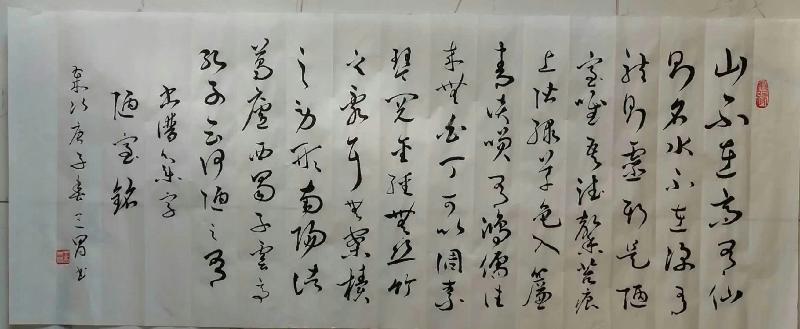 山不在高有仙
則名水不在深有
龍則靈斯是陋
室唯吾德馨苔痕
上階綠草色入簾
青談笑有鴻儒往
來無白丁可以調素
琴閱金經無絲竹
之亂耳無案牘
之勞形南陽諸
葛廬西蜀子雲亭
孔子云何陋之有
書譜集字
陋室銘
庚子春書